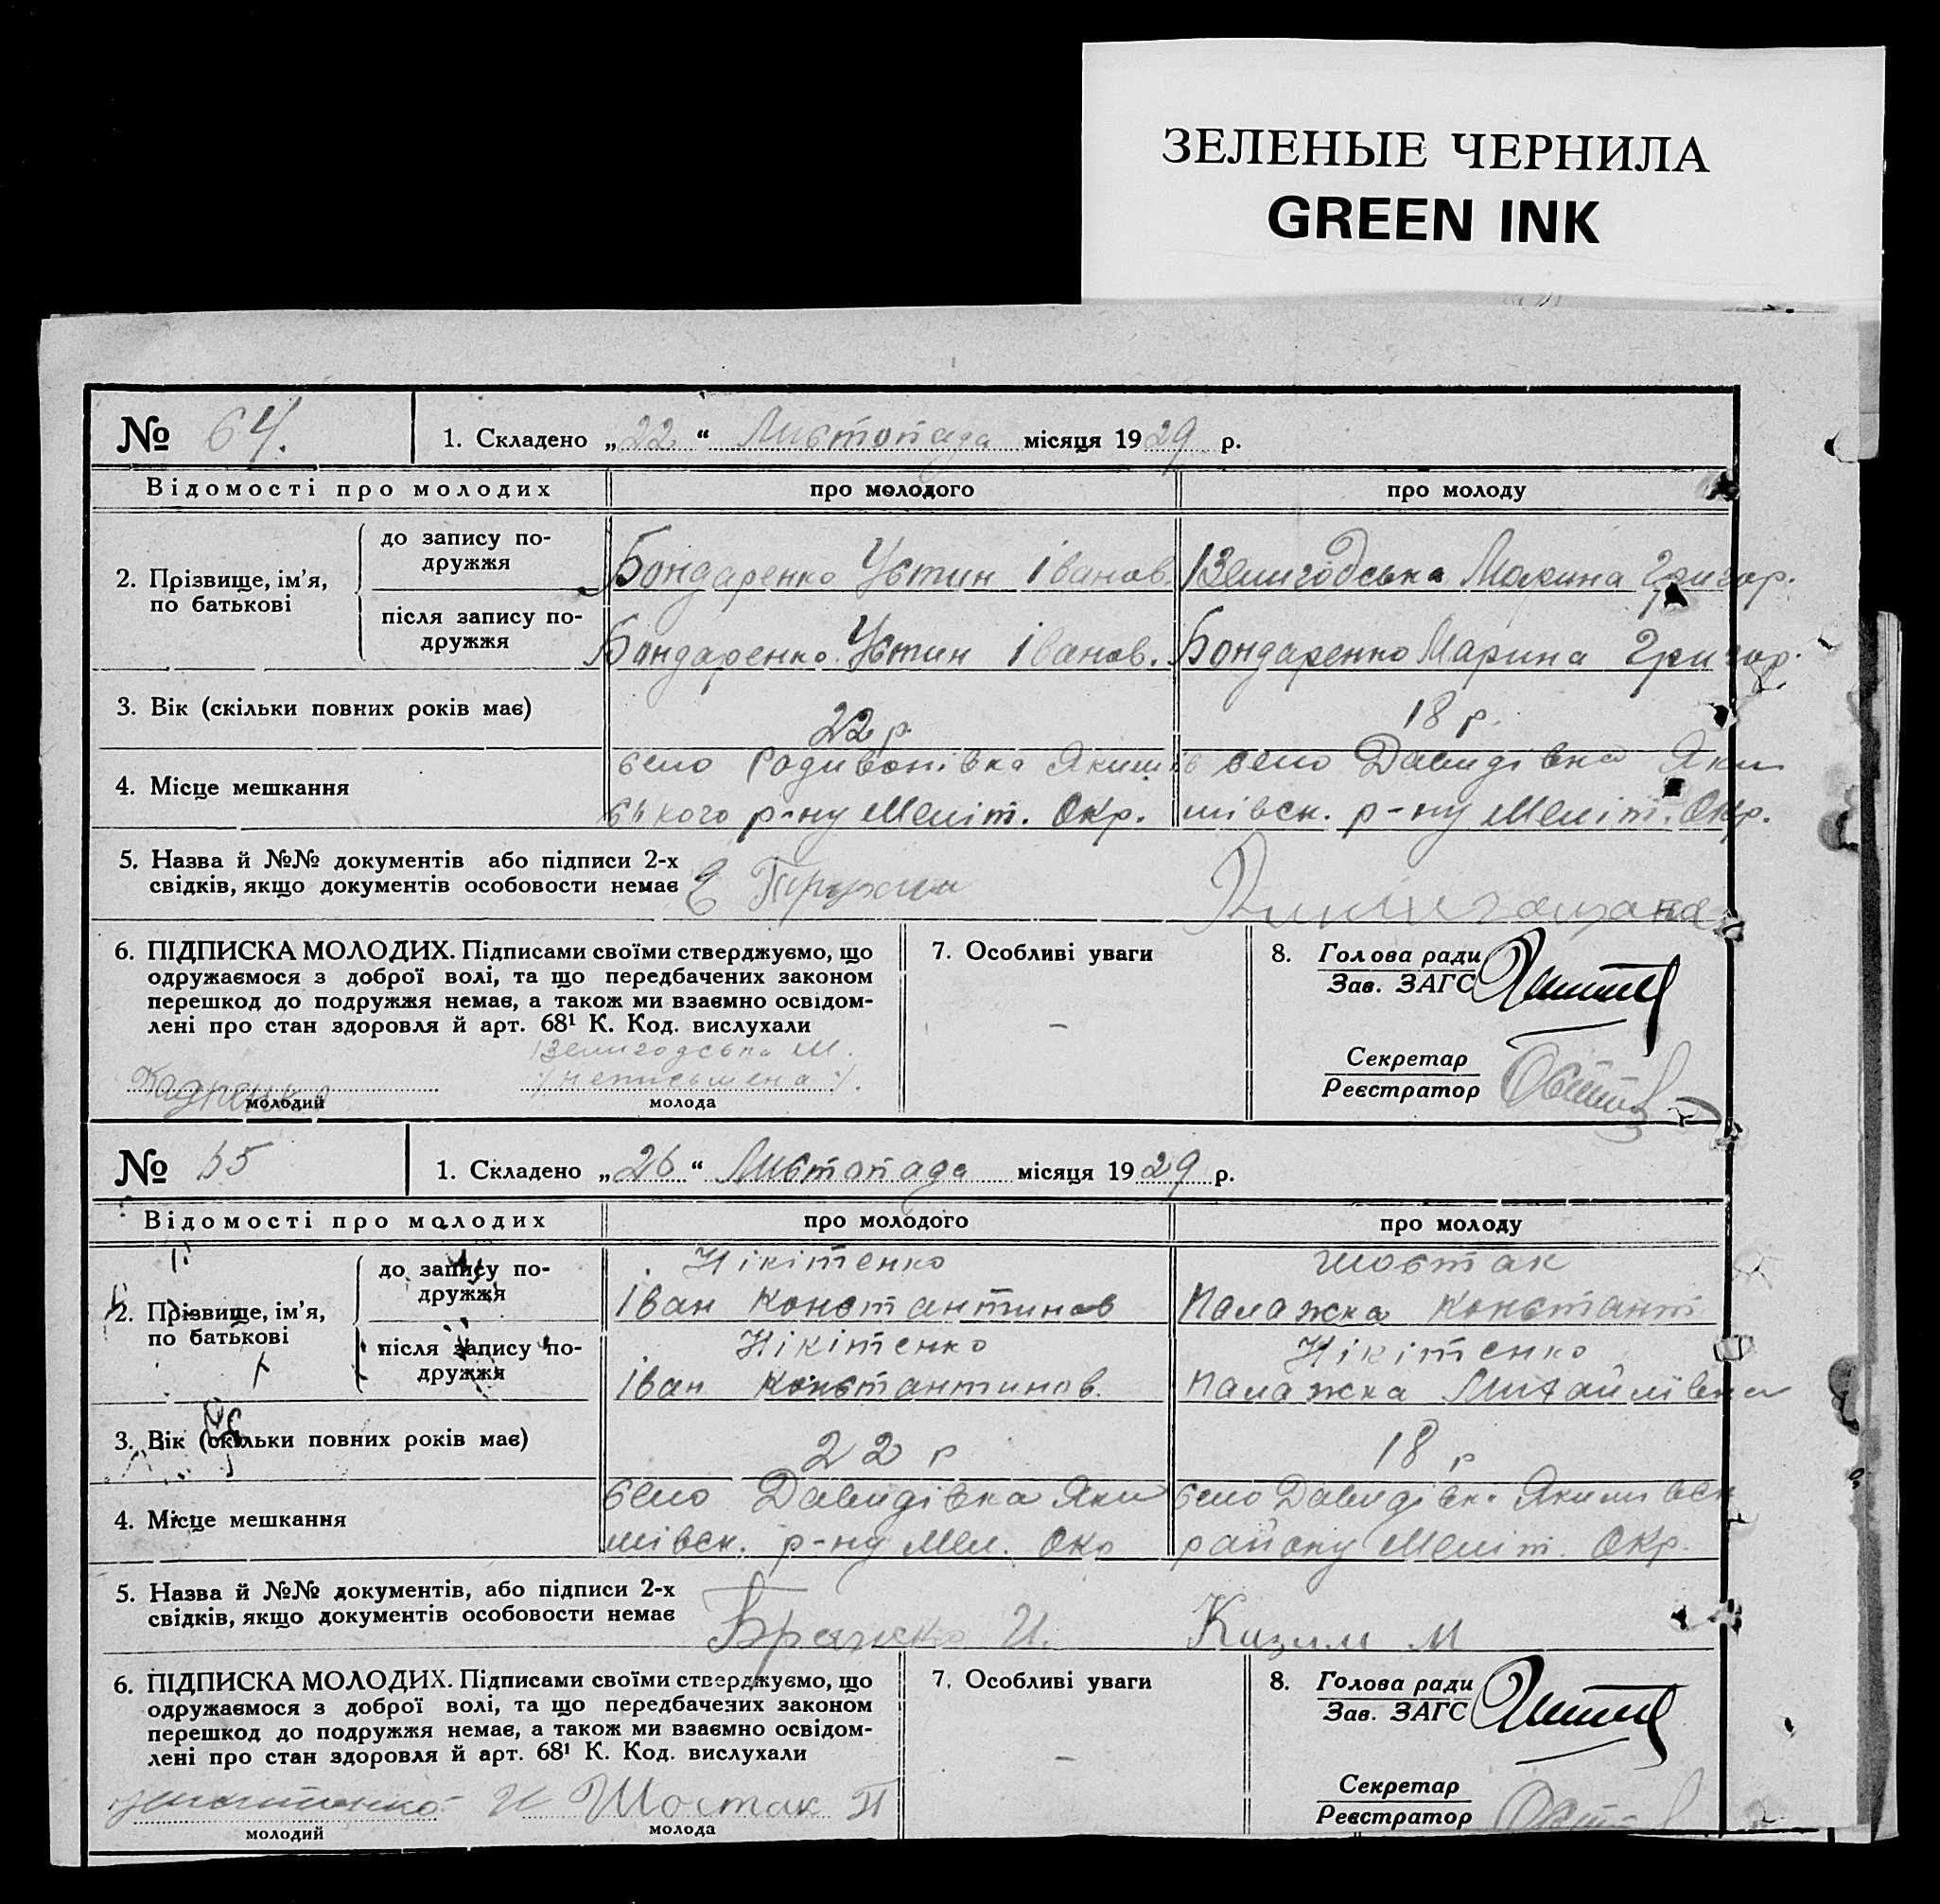 ЗЕЛЕНЫЕ ЧЕРНИЛА
GREEN INK
№ 64. 1. Складено „22“ Листопада місяця 1929 р.
Відомості про молодих про молодого про молоду
2. Прізвище, ім'я, по батькові
до запису по-
дружжя
Бондаренко Устин Іванов.
Марина Григор.
після запису по-
дружжя
Бондаренко Устин Іванов.
Бондаренко Марина Григор.
3. Вік (скільки повних років має) 22 р. 18 р.
4. Місце мешкання
село Родивонівка Якимів
ського р-ну Меліт. Окр.
село Давидівка Яки
мівск. р-ну Меліт. Окр.
5. Назва й №№ документів або підписи 2-х
свідків, якщо документів особовости немає
6. ПІДПИСКА МОЛОДИХ. Підписами своїми стверджуємо, що
одружаємося з доброї волі, та що передбачених законом
перешкод до подружжя немає, а також ми взаємно освідом-
лені про стан здоровля й арт. 68¹ К. Код. вислухали
неписьмена
молодий молода
7. Особливі уваги
–
8. Голова ради
Зав. ЗАГС
Секретар
Реєстратор
№ 65 1. Складено „26“ Листопада місяця 1929 р.
Відомості про молодих про молодого про молоду
2. Прізвище, ім'я,
по батькові
до запису по-
дружжя
Нікітенко
Іван Константинов
Шостак
Палажка Констант
після запису по-
дружжя
Нікітенко
Іван Константинов.
Нікітенко
Палажка Михайлівна
3. Вік (скільки повних років має) 22 р 18 р
4. Місце мешкання
село Давидівка Яки
мівск. р-ну Мел. Окр
село Давидівк. Якимівск
району Меліт. Окр.
5. Назва й №№ документів, або підписи 2-х
свідків, якщо документів особовости немає
И. М
6. ПІДПИСКА МОЛОДИХ. Підписами своїми стверджуємо, що
одружаємося з доброї волі, та що передбачених законом
перешкод до подружжя немає, а також ми взаємно освідом-
лені про стан здоровля й арт. 68¹ К. Код. вислухали
И Шостак П
молодий молода
7. Особливі уваги
–
8. Голова ради
Зав. ЗАГС
Секретар
Реєстратор